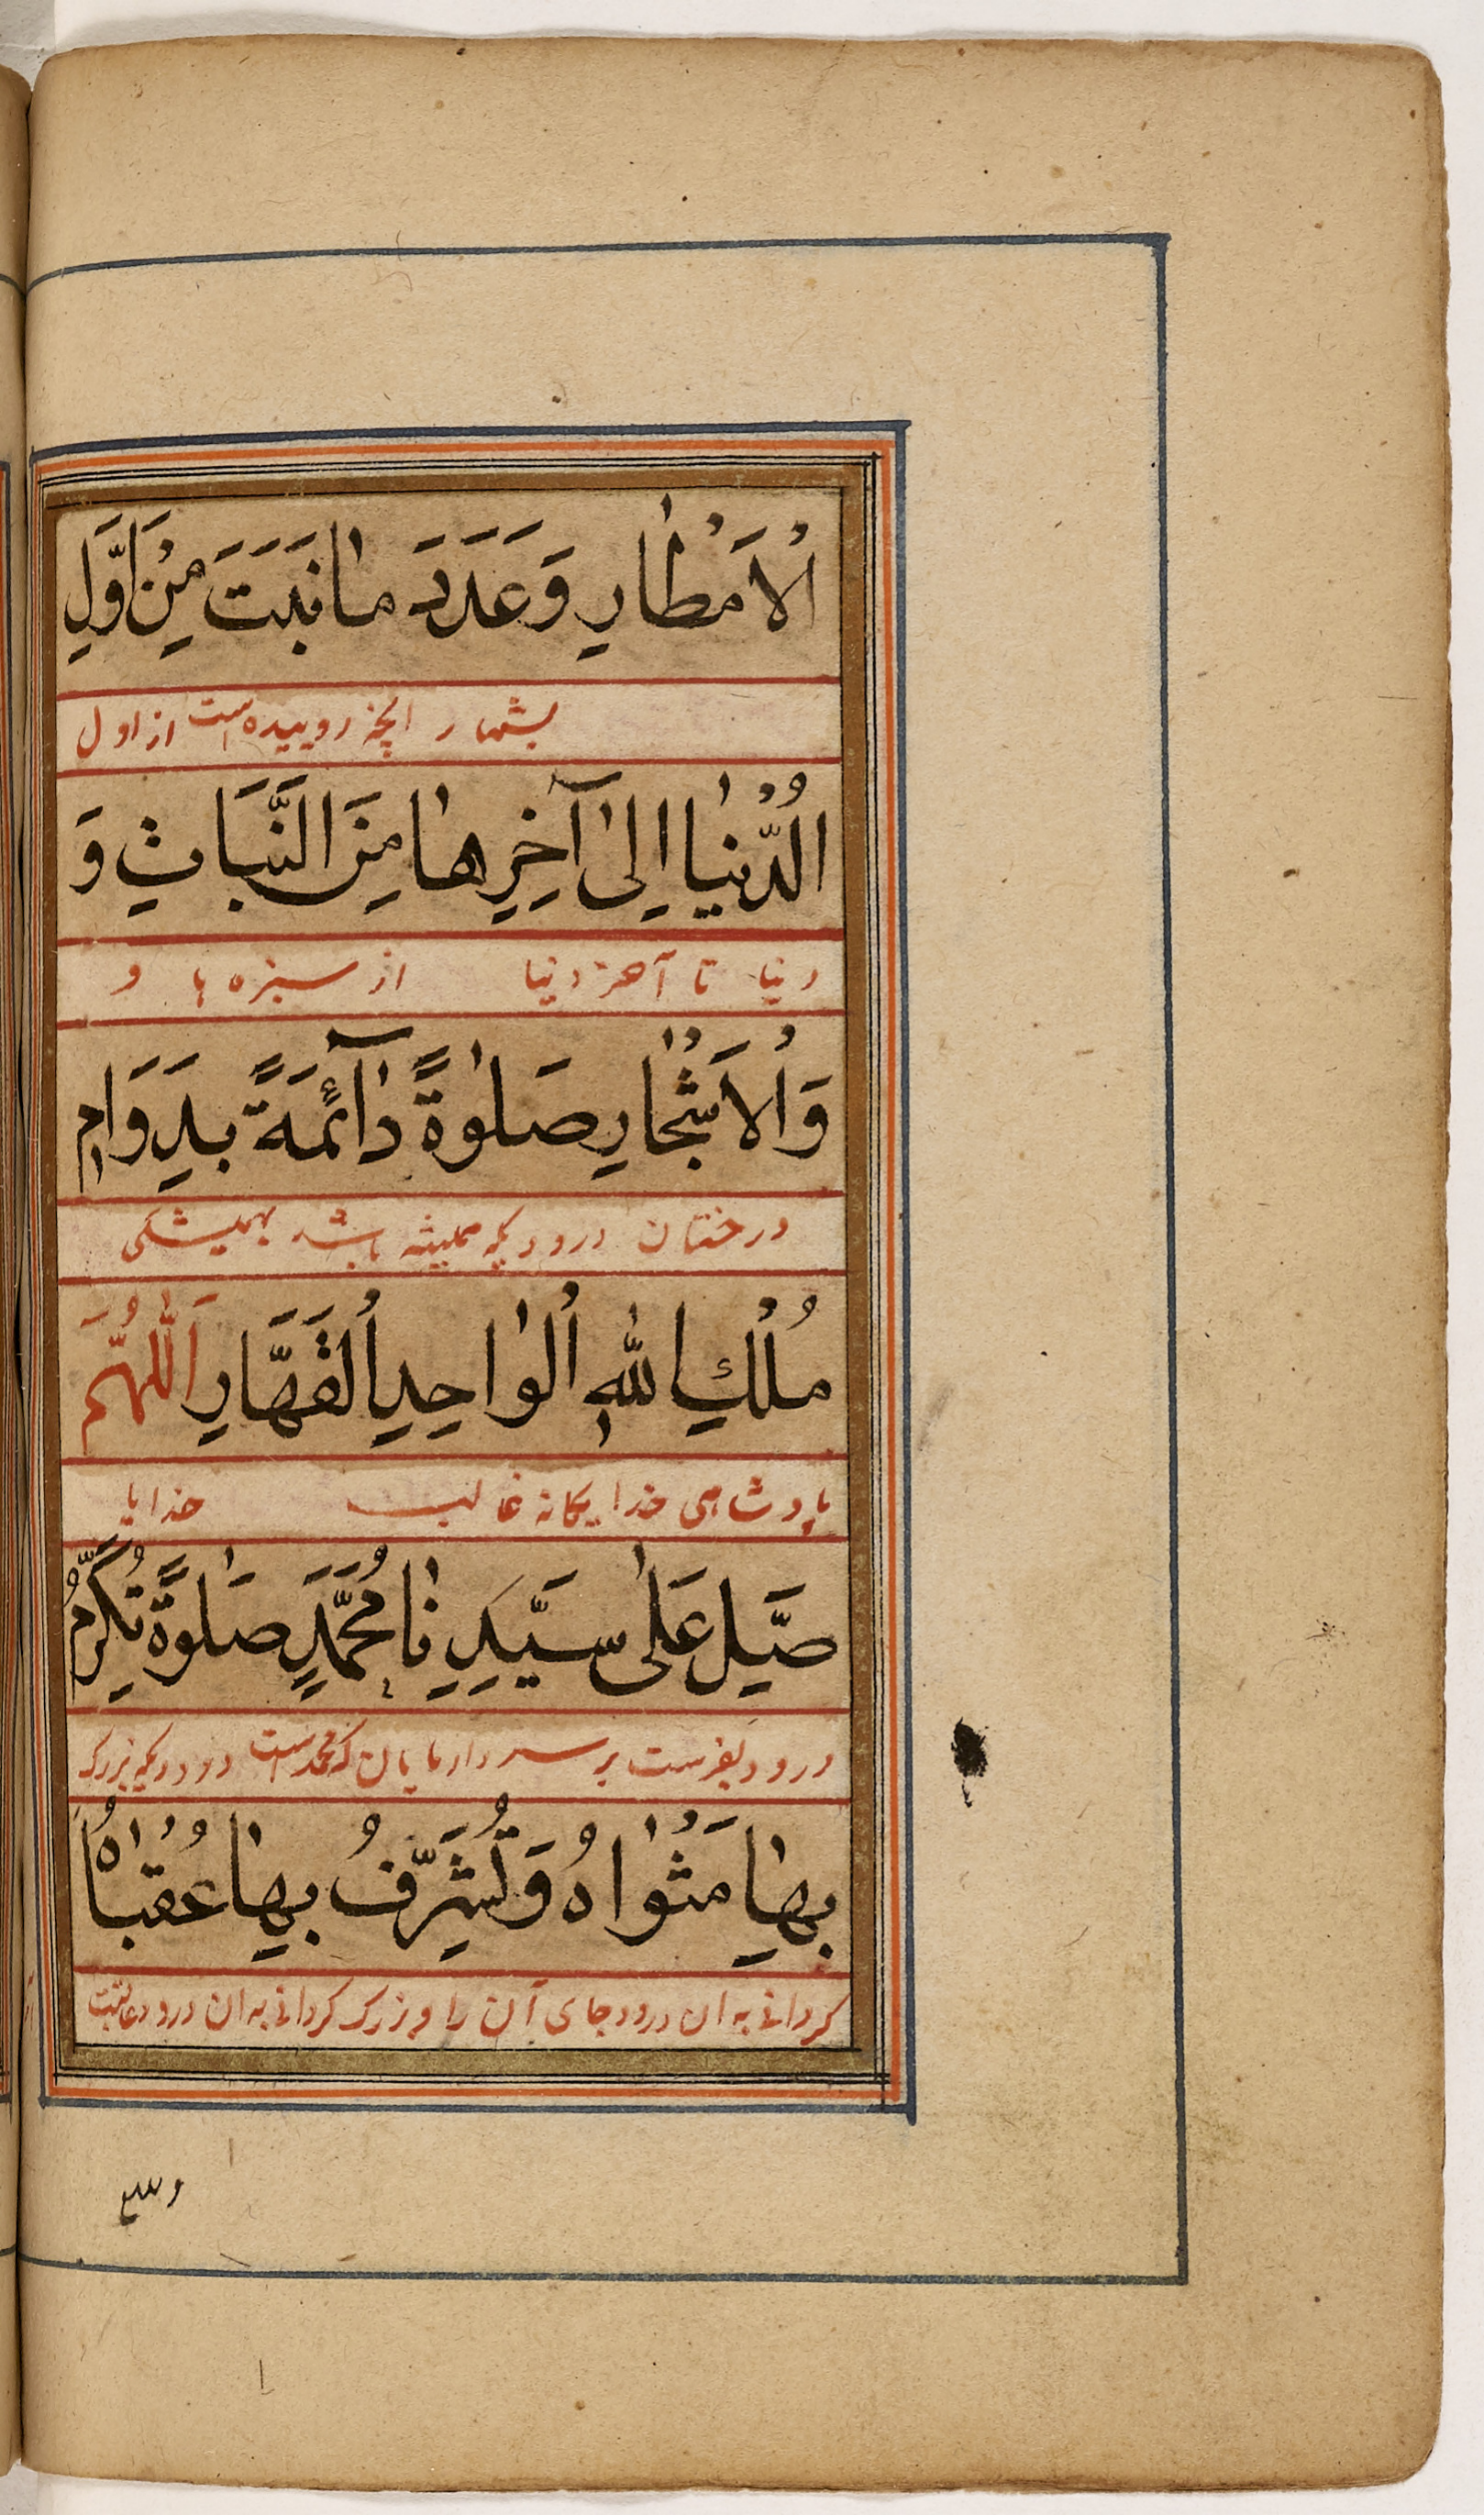 اْلاَمْطٰارِ وَعَدَدَ مٰا نَبَتَ مِنْ اَوَّلِ
بشمار انچه روییده است از اول
الدُّنْيٰا اِلىٰ آخِرِهٰا مِنَ النَّبَاتِ وَ
دنیا تا آخر دنیا از سبزه ها و
وَاْلاَشْجٰارِ صَلٰوةً دٰآئِمَةً بِدَوَامِ
درختان درودیکه همیشه باشد بهمیشکی
مُلْكِ اللّٰهِ اْلوٰاحِدِ اْلقَهَّارِ اَللّٰهُمَّ
پادشاهی خدا یکانه غالب خدایا
صَلِّ عَلىٰ سَيِّدِنٰا مُحَمَّدٍ صَلٰوةً تُكَرِّمُ
درود بفرست بر سردار مایان که محمد است درودیکه بزرک
بِهٰا مَثْوٰاهُ وَتُشَرِّفُ بِهٰا عُقْبٰاهُ
کردانی به ان درود جای آن را و بزرک کردانی به ان درود عاقبت